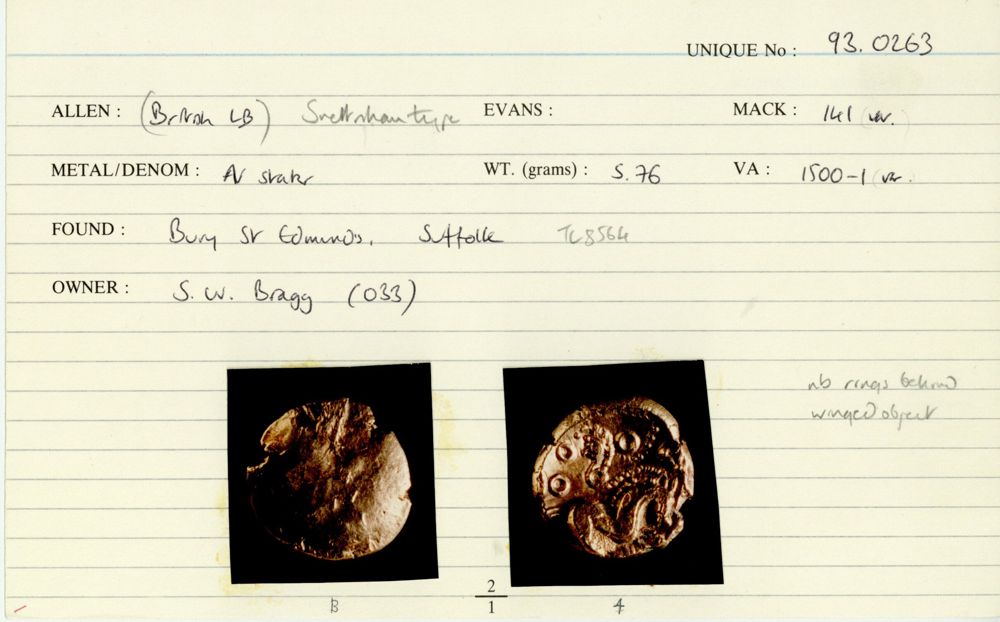 UNIQUE No : 93.0263
ALLEN : (British LB) Snettisham type EVANS : MACK : 141 (var.)
METAL/DENOM : AV stater WT. (grams) : 5.76 VA : 1500-1 (var.)
FOUND : Bury St Edmunds, Suffolk TL8564
OWNER : S. W. Bragg (033)
nb rings behind
winged object
2
1
B 4